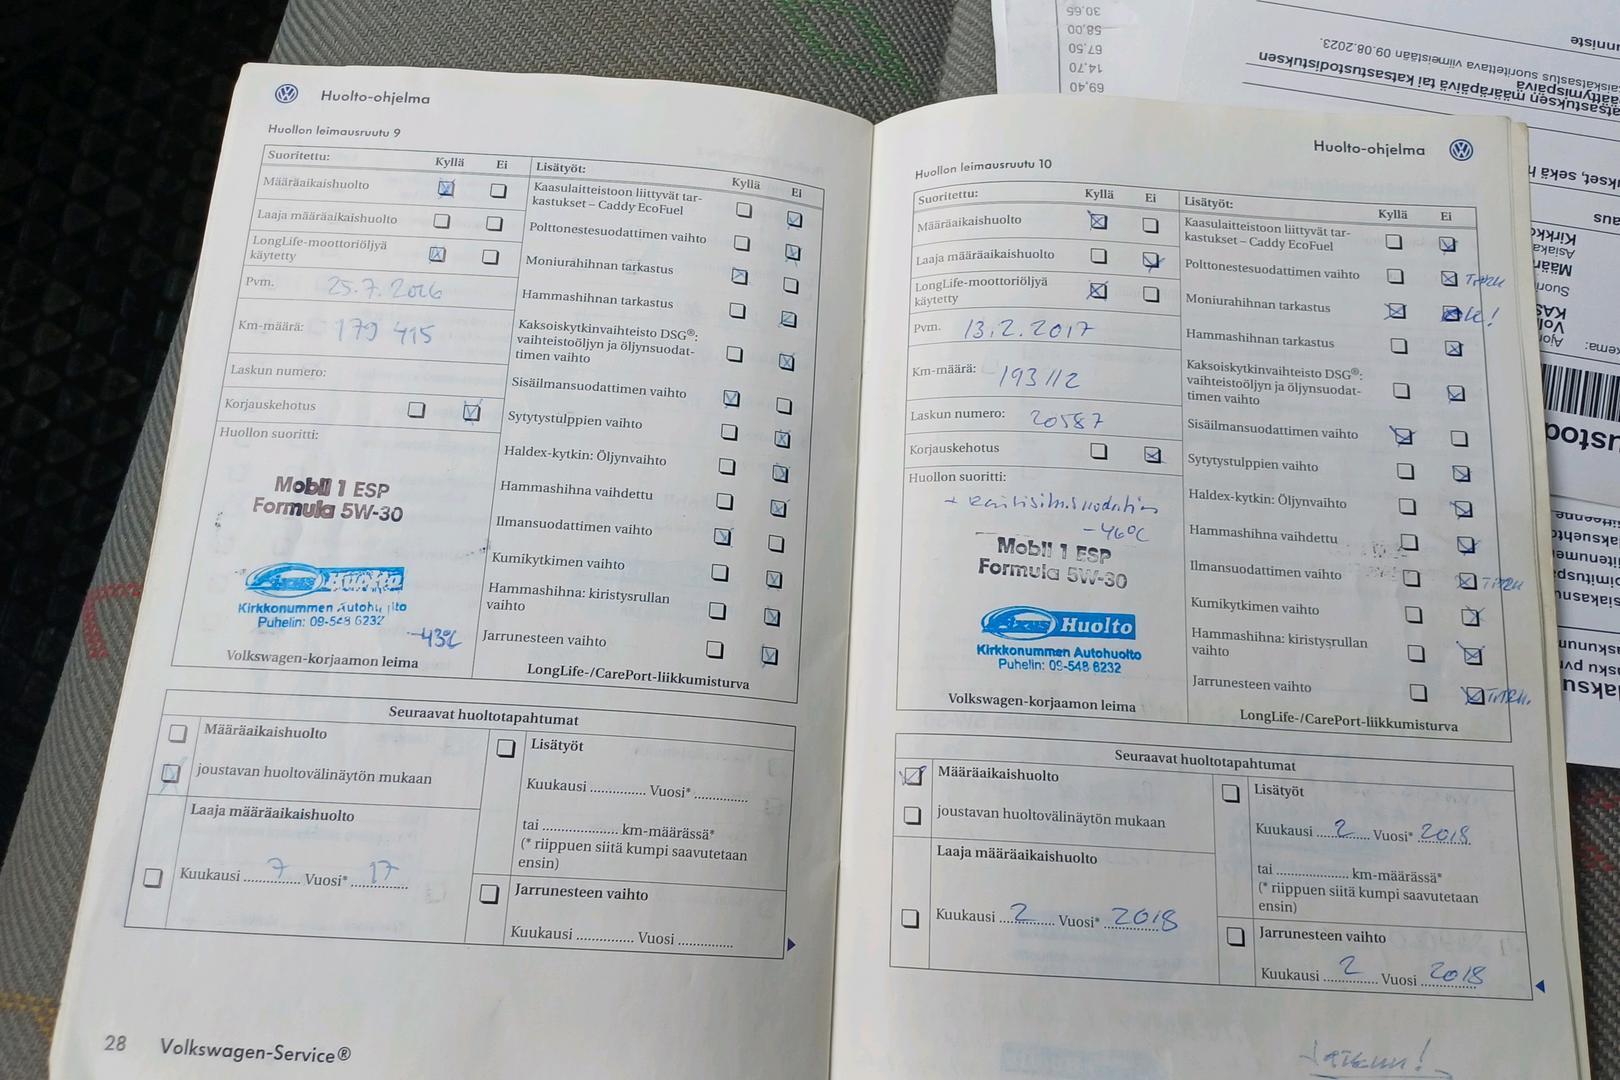 Huolto-ohjelma
Huollon leimausruutu 9
Suoritettu: Kyllä Ei
Määräaikaishuolto
Laaja määräaikaishuolto
LongLife-moottoriöljyä
käytetty
Pvm. 25.7.2016
Km-määrä: 179 415
Laskun numero:
Korjauskehotus
Huollon suoritti:
Mobil 1 ESP
Formula 5W-30
Huolto
Kirkkonummen Autohuolto
Puhelin: 09-548 6232
-43°C
Volkswagen-korjaamon leima
Lisätyöt: Kyllä Ei
Kaasulaitteistoon liittyvät tar-
kastukset – Caddy EcoFuel
Polttonestesuodattimen vaihto
Moniurahihnan tarkastus
Hammashihnan tarkastus
Kaksoiskytkinvaihteisto DSG®:
vaihteistoöljyn ja öljynsuodat-
timen vaihto
Sisäilmansuodattimen vaihto
Sytytystulppien vaihto
Haldex-kytkin: Öljynvaihto
Hammashihna vaihdettu
Ilmansuodattimen vaihto
Kumikytkimen vaihto
Hammashihna: kiristysrullan
vaihto
Jarrunesteen vaihto
LongLife-/CarePort-liikkumisturva
Seuraavat huoltotapahtumat
Määräaikaishuolto
joustavan huoltovälinäytön mukaan
Laaja määräaikaishuolto
Kuukausi 7 Vuosi* 17
Lisätyöt
Kuukausi .............. Vuosi* ..............
tai .................... km-määrässä*
(* riippuen siitä kumpi saavutetaan
ensin)
Jarrunesteen vaihto
Kuukausi .............. Vuosi ..............
28 Volkswagen-Service®
Huolto-ohjelma
Huollon leimausruutu 10
Suoritettu: Kyllä Ei
Määräaikaishuolto
Laaja määräaikaishuolto
LongLife-moottoriöljyä
käytetty
Pvm. 13.2.2017
Km-määrä: 193 112
Laskun numero: 20587
Korjauskehotus
Huollon suoritti:
-46°C
Mobil 1 ESP
Formula 5W-30
Huolto
Kirkkonummen Autohuolto
Puhelin: 09-548 6232
Volkswagen-korjaamon leima
Lisätyöt: Kyllä Ei
Kaasulaitteistoon liittyvät tar-
kastukset – Caddy EcoFuel
Polttonestesuodattimen vaihto
Moniurahihnan tarkastus OK!
Hammashihnan tarkastus
Kaksoiskytkinvaihteisto DSG®:
vaihteistoöljyn ja öljynsuodat-
timen vaihto
Sisäilmansuodattimen vaihto
Sytytystulppien vaihto
Haldex-kytkin: Öljynvaihto
Hammashihna vaihdettu
Ilmansuodattimen vaihto
Kumikytkimen vaihto
Hammashihna: kiristysrullan
vaihto
Jarrunesteen vaihto
LongLife-/CarePort-liikkumisturva
Seuraavat huoltotapahtumat
Määräaikaishuolto
joustavan huoltovälinäytön mukaan
Laaja määräaikaishuolto
Kuukausi 2 Vuosi* 2018
Lisätyöt
Kuukausi 2 Vuosi* 2018
tai .................... km-määrässä*
(* riippuen siitä kumpi saavutetaan
ensin)
Jarrunesteen vaihto
Kuukausi 2 Vuosi 2018
69,40
14,70
67,50
58,00
30,65
suoritettava viimeistään 09.08.2023.